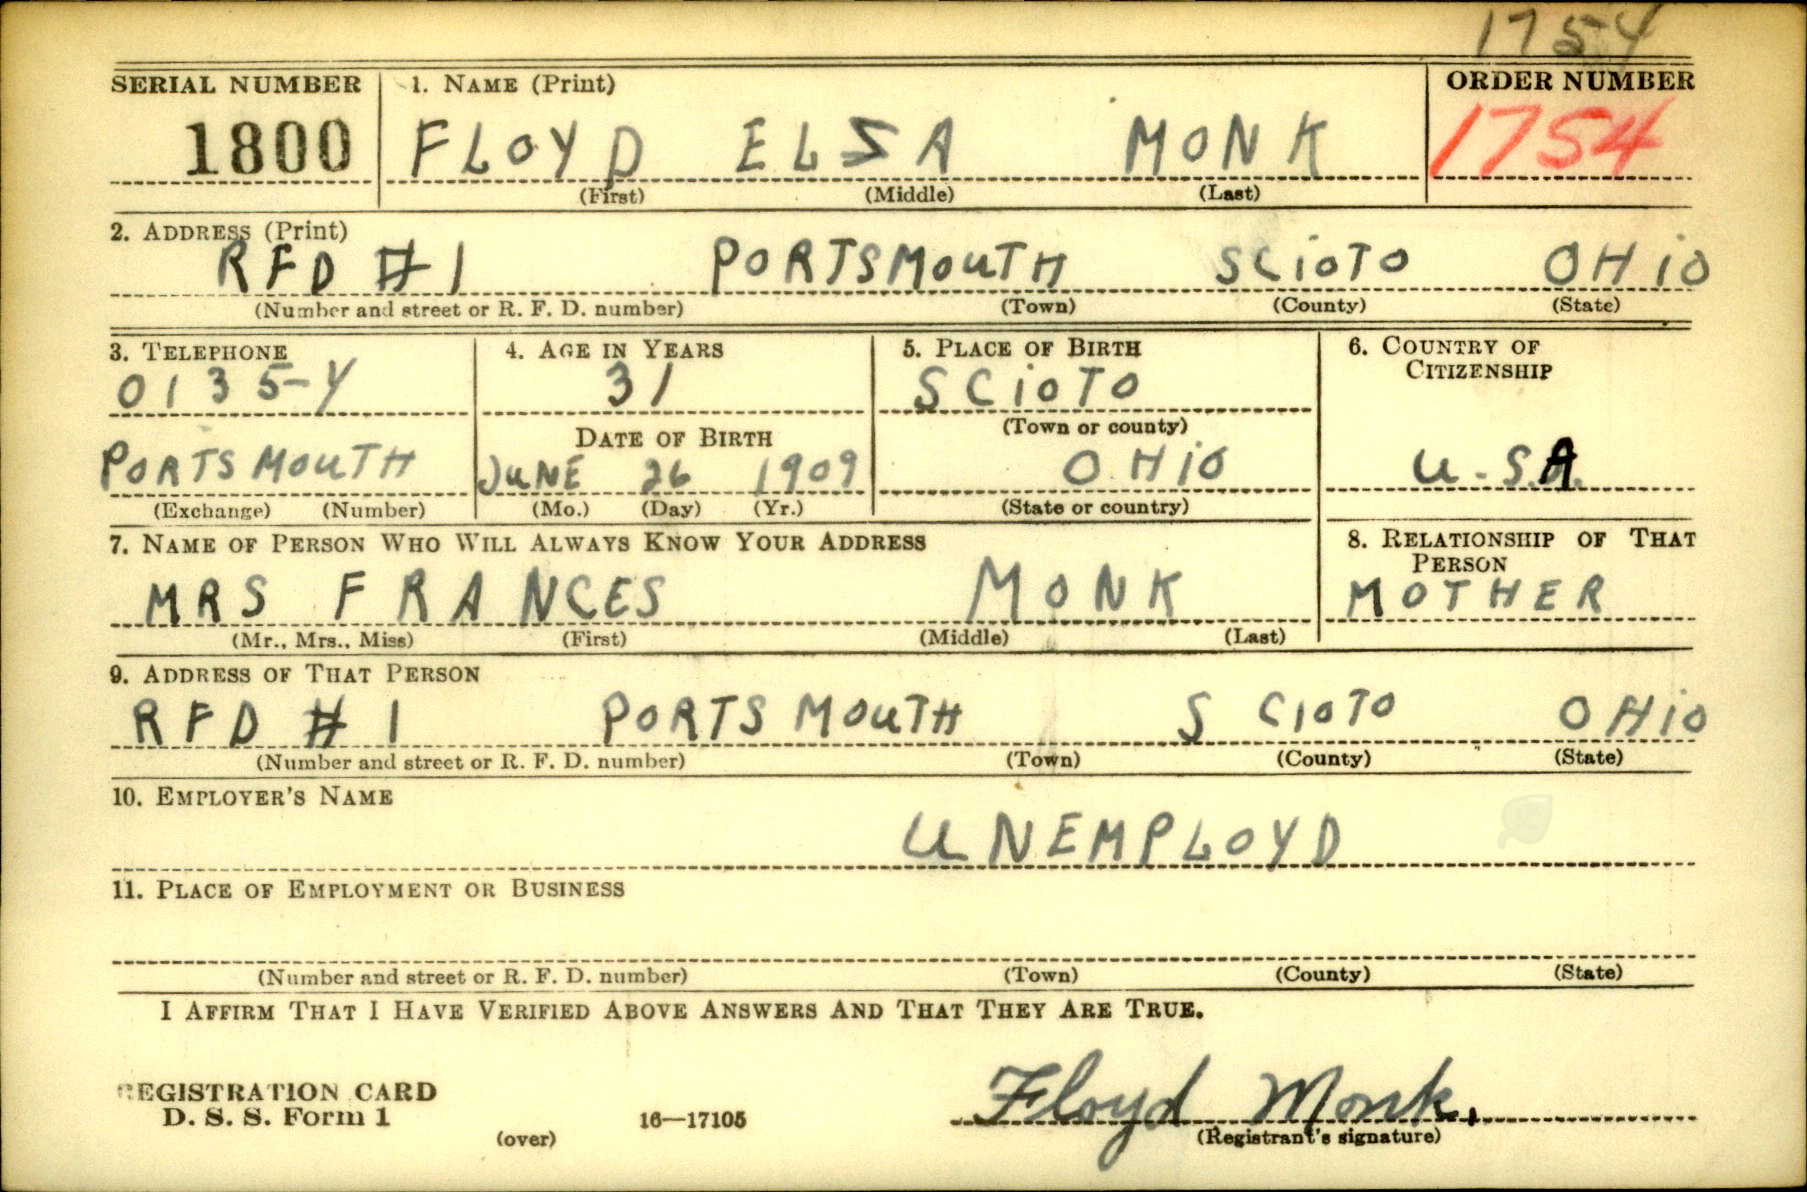 1754
SERIAL NUMBER 1. NAME (Print) ORDER NUMBER
1800 FLOYD ELSA MONK 1754
(First) (Middle) (Last)
2. ADDRESS (Print)
RFD #1 PORTSMOUTH SCIOTO OHIO
(Number and street or R. F. D. number) (Town) (County) (State)
3. TELEPHONE 4. AGE IN YEARS 5. PLACE OF BIRTH 6. COUNTRY OF
CITIZENSHIP
0135-Y 31 SCIOTO
(Town or county)
DATE OF BIRTH
PORTSMOUTH JUNE 26 1909 OHIO U.S.A.
(Exchange) (Number) (Mo.) (Day) (Yr.) (State or country)
7. NAME OF PERSON WHO WILL ALWAYS KNOW YOUR ADDRESS 8. RELATIONSHIP OF THAT
PERSON
MRS FRANCES MONK MOTHER
(Mr., Mrs., Miss) (First) (Middle) (Last)
9. ADDRESS OF THAT PERSON
RFD #1 PORTSMOUTH SCIOTO OHIO
(Number and street or R. F. D. number) (Town) (County) (State)
10. EMPLOYER'S NAME
UNEMPLOYD
11. PLACE OF EMPLOYMENT OR BUSINESS
(Number and street or R. F. D. number) (Town) (County) (State)
I AFFIRM THAT I HAVE VERIFIED ABOVE ANSWERS AND THAT THEY ARE TRUE.
REGISTRATION CARD
D. S. S. Form 1 16—17105 Floyd Monk.
(over) (Registrant's signature)